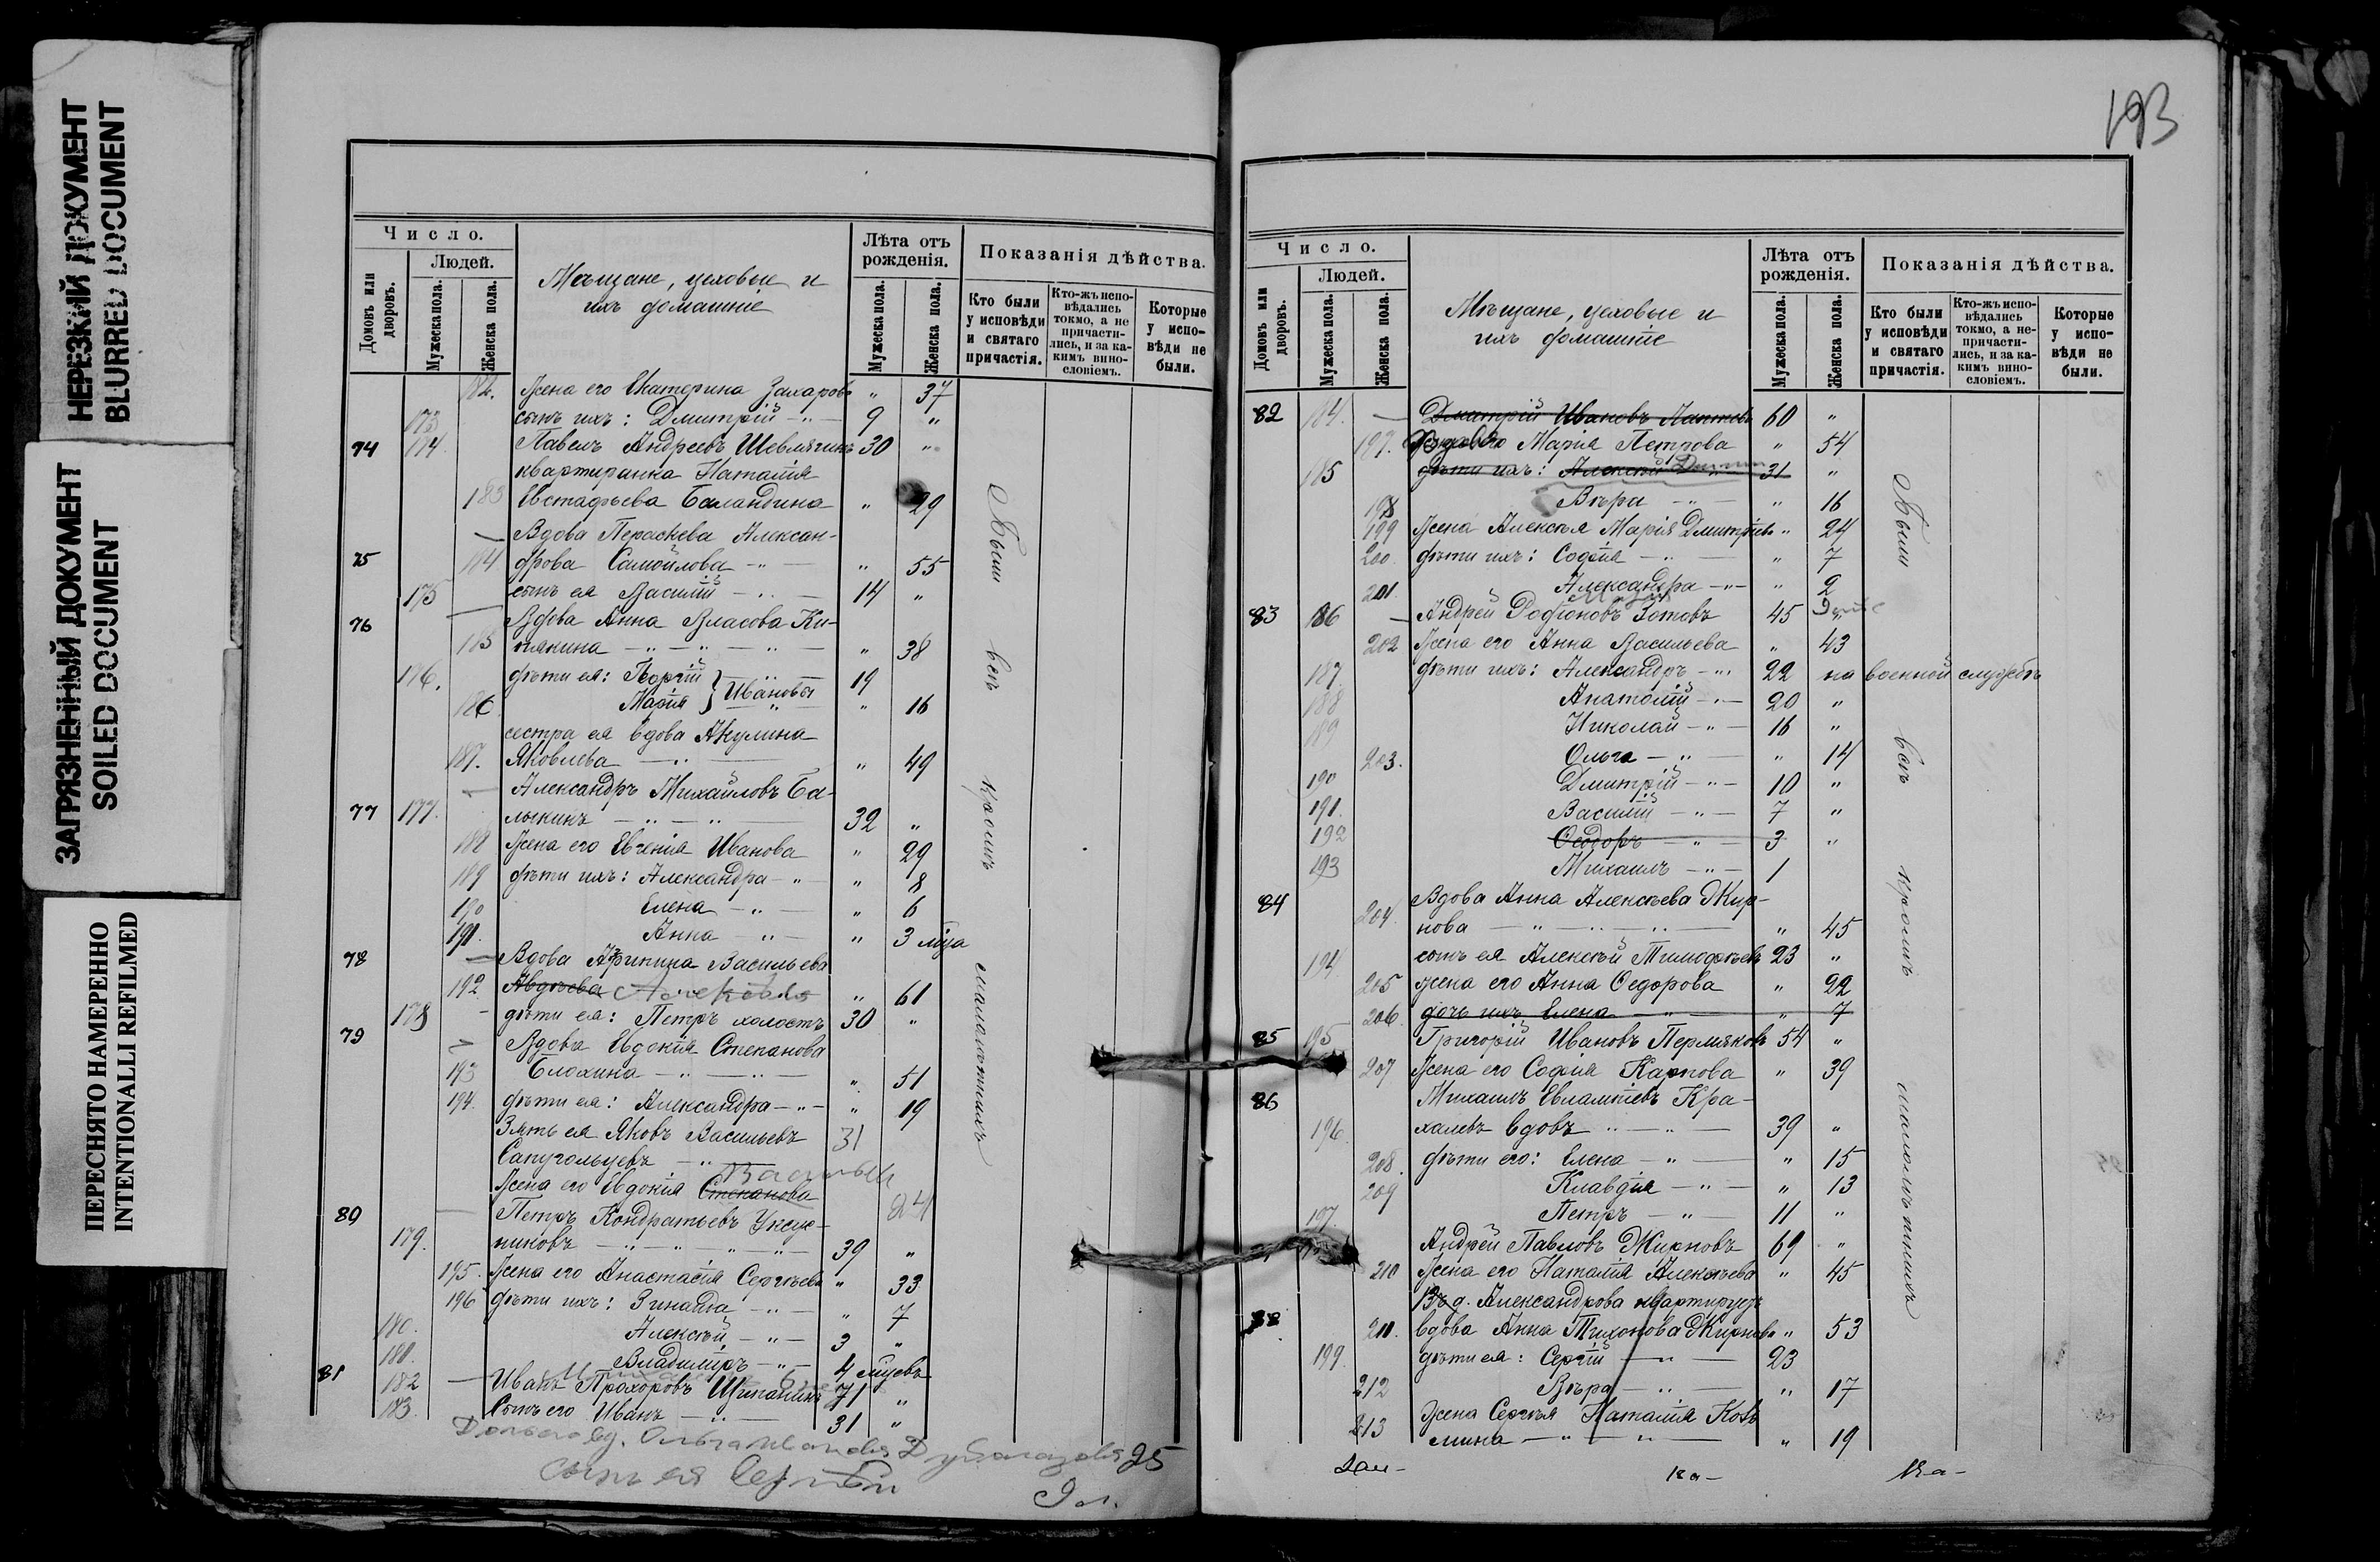 НЕРЕЗКИЙ ДОКУМЕНТ
BLURRED DOCUMENT
ЗАГРЯЗНЕННЫЙ ДОКУМЕНТ
SOILED DOCUMENT
ПЕРЕСНЯТО НАМЕРЕННО
INTENTIONALLI REFILMED
Число.
Домовъ или дворовъ.
Людей.
Мужеска пола.
Женска пола.
Мѣщане, цеховые и
ихъ домашніе
Лѣта отъ рожденія.
Мужеска пола.
Женска пола.
Показанія дѣйства.
Кто были у исповѣди и святаго причастія.
Кто-жъ исповѣдались токмо, а не причастились, и за какимъ винословіемъ.
Которые у исповѣди не были.
182. Жена его Екатерина Захарова " 37
173 сынъ ихъ: Дмитрій - " - 9 "
74 174 Павелъ Андреевъ Шевлягинъ 30 "
квартиранка Наталія
183 Евстафьева Баландина " 29
Вдова Параскева Алексан-
75 184 дрова Самойлова - " - " 55
175 сынъ ея Василій - " - 14 "
76 Вдова Анна Власова Ки-
185 пякина - " - " - " - " 38
176. дѣти ея: Георгій } Ивановы 19
186 Марія " 16
сестра ея вдова Акулина
187. Яковлева - " - " 49
Александръ Михайловъ Ба-
77 177. лыкинъ - " - " - 32 "
188 Жена его Евгенія Иванова " 29
189 дѣти ихъ: Александра - " - " 8
190 Елена - " - " 6
191. Анна " - " 3 мѣца
78 Вдова Агрипина Васильева
192 Авдѣева " 61
178 - дѣти ея: Петръ холостъ 30 "
79 Вдова Евдокія Степанова
193 Блохина - " - " - " 51
194. дѣти ея: Александра - " - " 19
Зять ея Яковъ Васильевъ 31
Сапугольцевъ - " -
Васильев
Жена его Евдокія Степанова 24
80 Петръ Кондратьевъ Уксус-
179. никовъ - " - " - " - " - 39 "
195. Жена его Анастасія Сергѣева " 33
196 дѣти ихъ: Зинаида - " - " 7
180. Алексѣй - " - 3 "
181. Владиміръ - " - 4 мѣцевъ
81 182 Иванъ Прохоровъ Щипанинъ 71 "
183. Сынъ его Иванъ - " - 31 "
Ольга Иванова 25
сынъ ея Сергѣй
9 л.
Были всѣ кромѣ малолѣтнихъ
193
Число.
Домовъ или дворовъ.
Людей.
Мужеска пола.
Женска пола.
Мѣщане, цеховые и
ихъ домашніе
Лѣта отъ рожденія.
Мужеска пола.
Женска пола.
Показанія дѣйства.
Кто были у исповѣди и святаго причастія.
Кто-жъ исповѣдались токмо, а не-причастились, и за какимъ винословіемъ.
Которые у исповѣди не были.
82 184. - Дмитрій Ивановъ Лаптевъ 60 "
197. Вдова Марія Петрова " 54
185 дѣти ихъ: Алексѣй 31 "
198 Вѣра - " - " 16
199 Жена Алексѣя Марія Дмитріева " 24
200 дѣти ихъ: Софія - " - " 7
201 Александра - " - " 2
83 186 - Андрей Родіоновъ Зотовъ 45 "
202 Жена его Анна Васильева " 43
187. дѣти ихъ: Александръ - " - 22 на военной службѣ
188 Анатолій - " - 20 "
189 Николай - " - 16 "
203. Ольга - " - " 14
190 Дмитрій - " - 10 "
191. Василій - " - 7 "
192 Ѳеодоръ - " - 3 "
193 Михаилъ - " - 1
84 Вдова Анна Алексѣева Жир-
204. нова - " - " - " - " 45
194 сынъ ея Алексѣй Тимофѣевъ 23 "
205 жена его Анна Ѳедорова " 22
206. дочь ихъ Елена - " - " 7
85 195 Григорій Ивановъ Пермяковъ 54 "
207 Жена его Софія Карпова " 39
86 Михаилъ Евлампіевъ Кра-
196. халевъ вдовъ " - " - 39 "
208. дѣти его: Елена - " - " 15
209 Клавдія - " - " 13
197. Петръ - " - 11 "
Андрей Павловъ Жирновъ 69 "
210 Жена его Наталія Алексѣева " 45
Въ д. Александрова квартируетъ
88 211. вдова Анна Тихонова Жирнова " 53
199. дѣти ея: Сергій - " - 23
212 Вѣра - " - " 17
Жена Сергѣя Наталія Козь
213 мина - " - " - " 19
Были всѣ кромѣ малолѣтнихъ
ка-